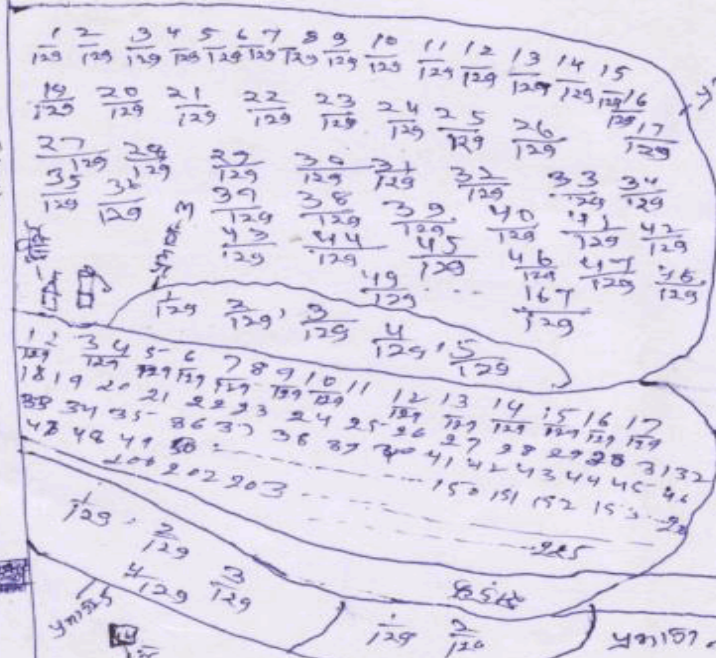 1/129 2/129 3/129 4/129 5/129 6/129 7/129 8/129 9/129 10/129 11/129 12/129 13/129 14/129 15/129 16/129 17/129
19/129 20/129 21/129 22/129 23/129 24/129 25/129 26/129
27/129 28/129 29/129 30/129 31/129 32/129 33/129 34/129
35/129 36/129 37/129 38/129 39/129 40/129 41/129 42/129
43/129 44/129 45/129 46/129 47/129 48/129
49/129 ... 167/129
1/129 2/129, 3/129 4/129, 5/129
1/129 2 3/129 4 5/129 6/129 7/129 8 9/129 10/129 11 12/129 13/129 14/129 15/129 16/129 17/129
18 19 20 21 22 23 24 25 26 27 28 29 28 31 32
33 34 35 36 37 38 39 40 41 42 43 44 45 46
48 48 49 50 ------ 150 151 152 153
202 203 ------
225
1/129, 2/129
4/129 3/129
1/129 2/129